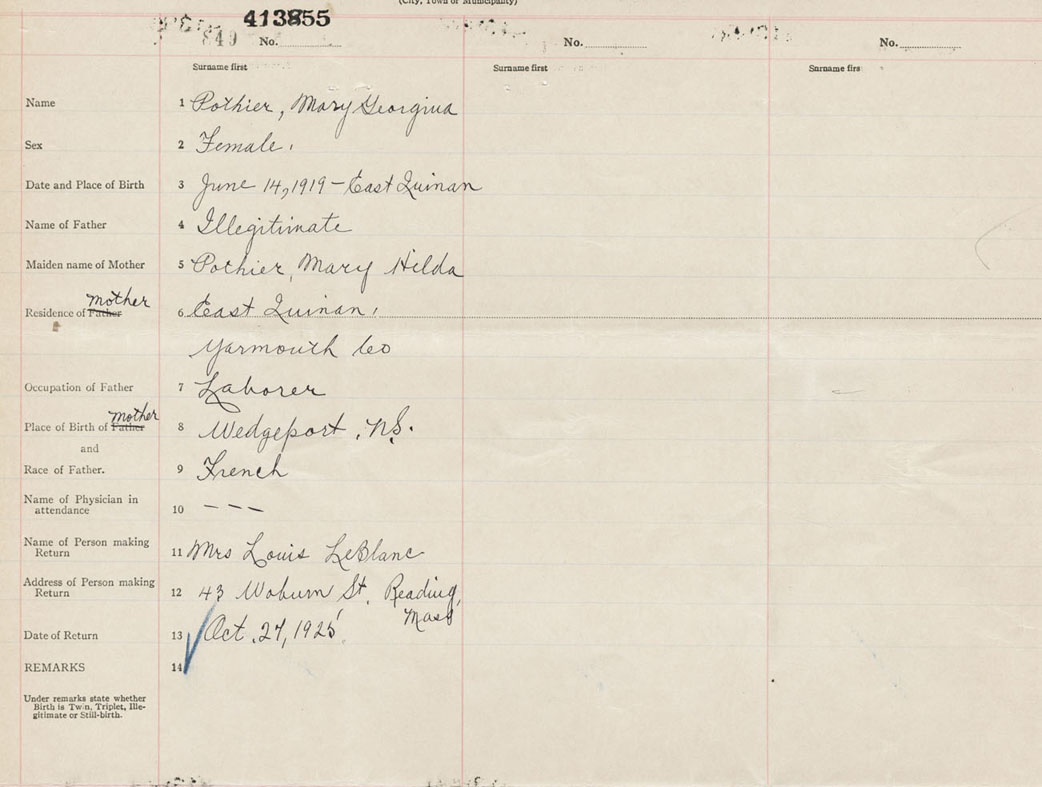 (City, Town or Municipality)
413855
849 No. No. No.
Surname first Surname first Surname firs
Name 1 Pothier, Mary Georgina
Sex 2 Female.
Date and Place of Birth 3 June 14, 1919 - East Quinan
Name of Father 4 Illegitimate
Maiden name of Mother 5 Pothier, Mary Hilda
mother
Residence of Father 6 East Quinan,
Yarmouth Co
Occupation of Father 7 Laborer
mother
Place of Birth of Father 8 Wedgeport, N.S.
and
Race of Father. 9 French
Name of Physician in
attendance 10 - - -
Name of Person making
Return 11 Mrs Louis LeBlanc
Address of Person making
Return 12 43 Woburn St. Reading,
Mass
Date of Return 13 Oct. 27, 1925
REMARKS 14
Under remarks state whether
Birth is Twin, Triplet, Ille-
gitimate or Still-birth.